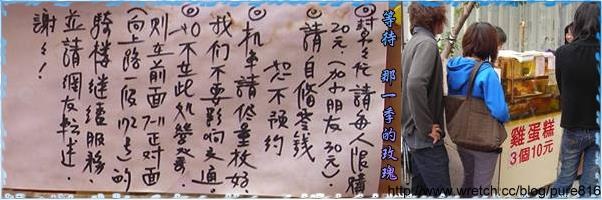 請每人限購
20元(加小朋友30元).
◎請自備零錢
恕不預約
◎机車請停放好.
我們不要影響交通.
不在此處營業.
則在前面7-11正對面
(向上路一段172号)的
騎樓継續服務.
並請網友転述.
謝々!
等待 那一季的玫瑰
雞蛋糕
3個10元
http://www.wretch.cc/blog/pure816